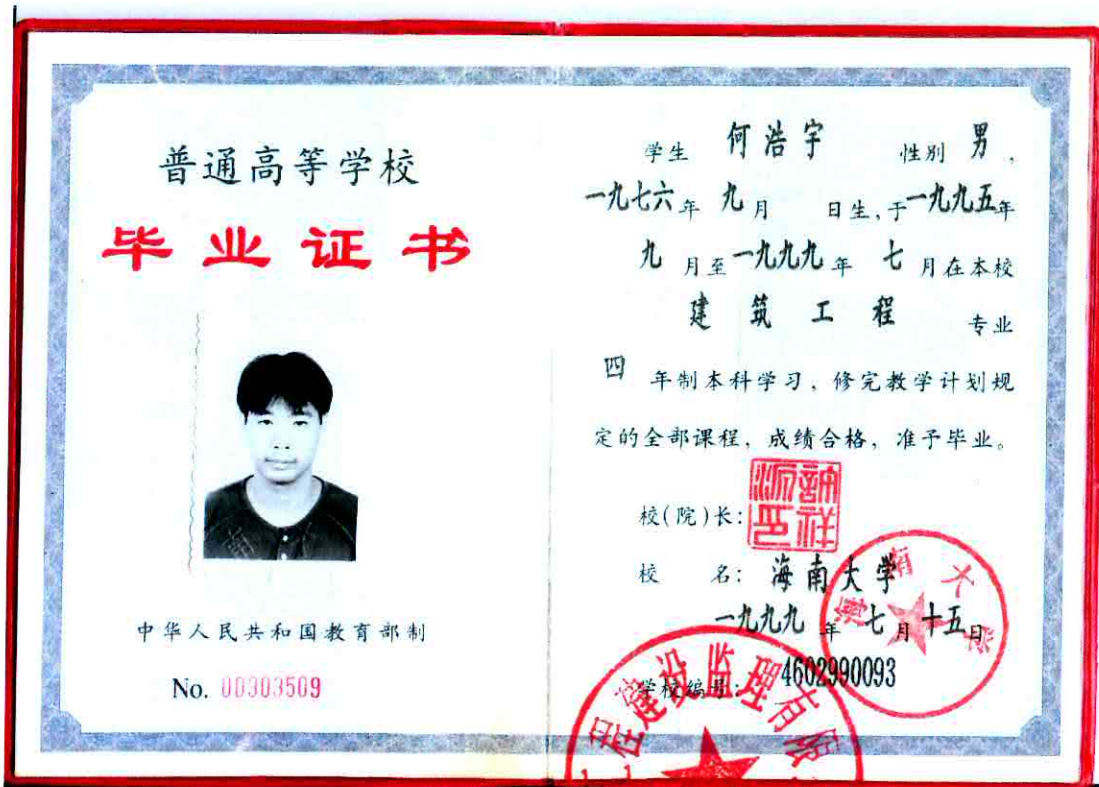 普通高等学校
毕业证书
中华人民共和国教育部制
No. 00303509
学生 何浩宇 性别 男，
一九七六年 九月 日生，于一九九五年
九 月至一九九九年 七 月在本校
建筑工程 专业
四 年制本科学习，修完教学计划规
定的全部课程，成绩合格，准予毕业。
校(院)长：
校 名： 海南大学
一九九九 年 七 月 十五日
学校编号： 4602990093
海南大学
建设监理有限